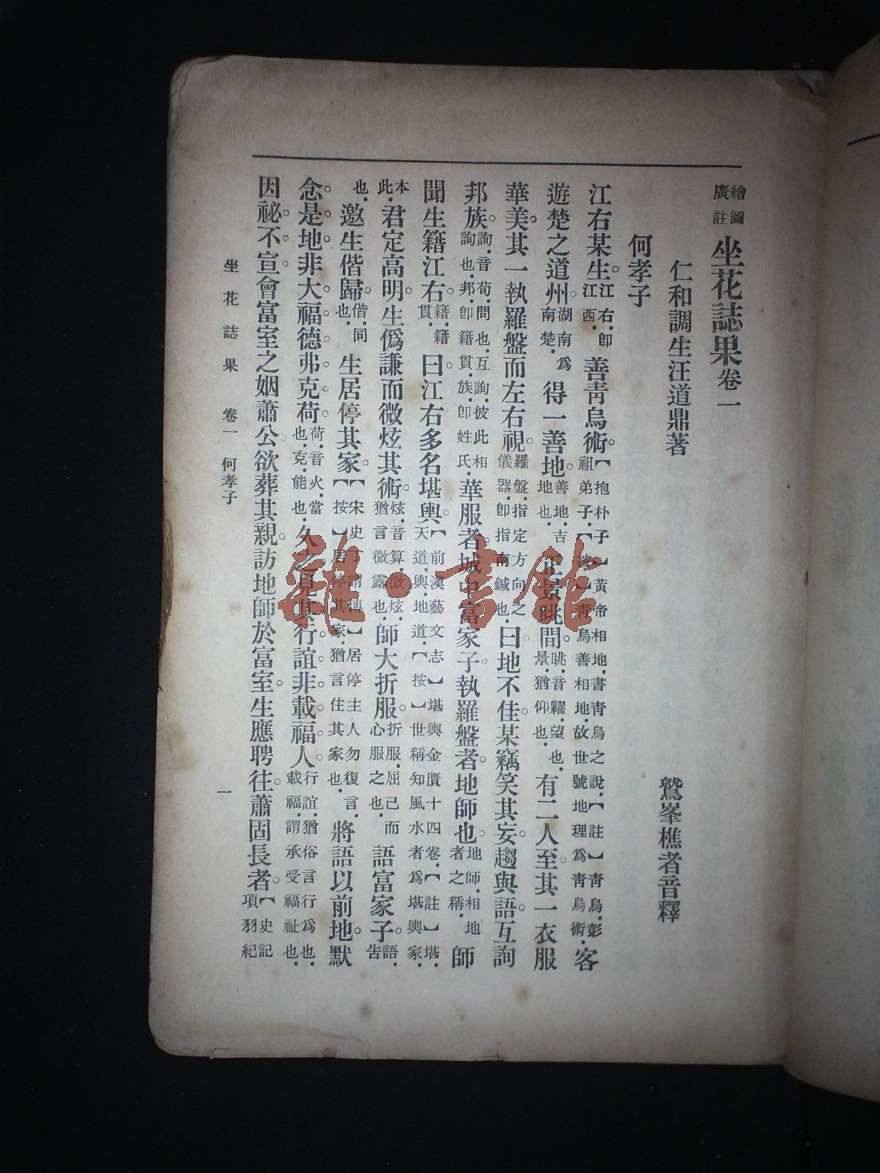 繪圖廣註 坐花誌果卷一
仁和調生汪道鼎著 鷲峯樵者音釋
何孝子
江右某生。江右、即江西、善青烏術。【抱朴子】黃帝相地、書青烏之說、【註】青烏、彭祖弟子、【按】青烏善相地、故世號地理為青烏術、客
遊楚之道州。湖南為南楚、得一善地。善地、吉地也、正景眺間。眺、音糶、望也、景、猶仰也、有二人至。其一衣服
華美。其一執羅盤而左右視。羅盤、指定方向之儀器、即指南鍼也、曰地不佳。某竊笑其妄。趨與語。互詢
邦族。詢、音荀、問也、互詢、彼此相詢也、邦、即籍貫、族、即姓氏、華服者。城中富家子。執羅盤者。地師也。地師、相地者之稱、師
聞生籍江右。籍、籍貫、曰江右多名堪輿。【前漢藝文志】堪輿金匱十四卷、【註】堪、天道、輿、地道、【按】世稱知風水者為堪輿家、
本此、君定高明。生偽謙而微炫其術。炫、音算、微炫、猶言微露也、師大折服。折服、屈己而心服之也、語富家子。語、告
也、邀生偕歸。偕、同也、生居停其家。【宋史丁謂傳】居停主人勿復言、【按】居停其家、猶言住其家也、將語以前地。默
念是地非大福德弗克荷。荷、音火、當也、克、能也、久之見其行誼。非載福人。行誼、猶俗言行為也、載福、謂承受福祉也、
因祕不宣。會富室之姻蕭公欲葬其親。訪地師於富室。生應聘往。蕭固長者。【史記項羽紀
坐花誌果 卷一 何孝子 一
雜·書館